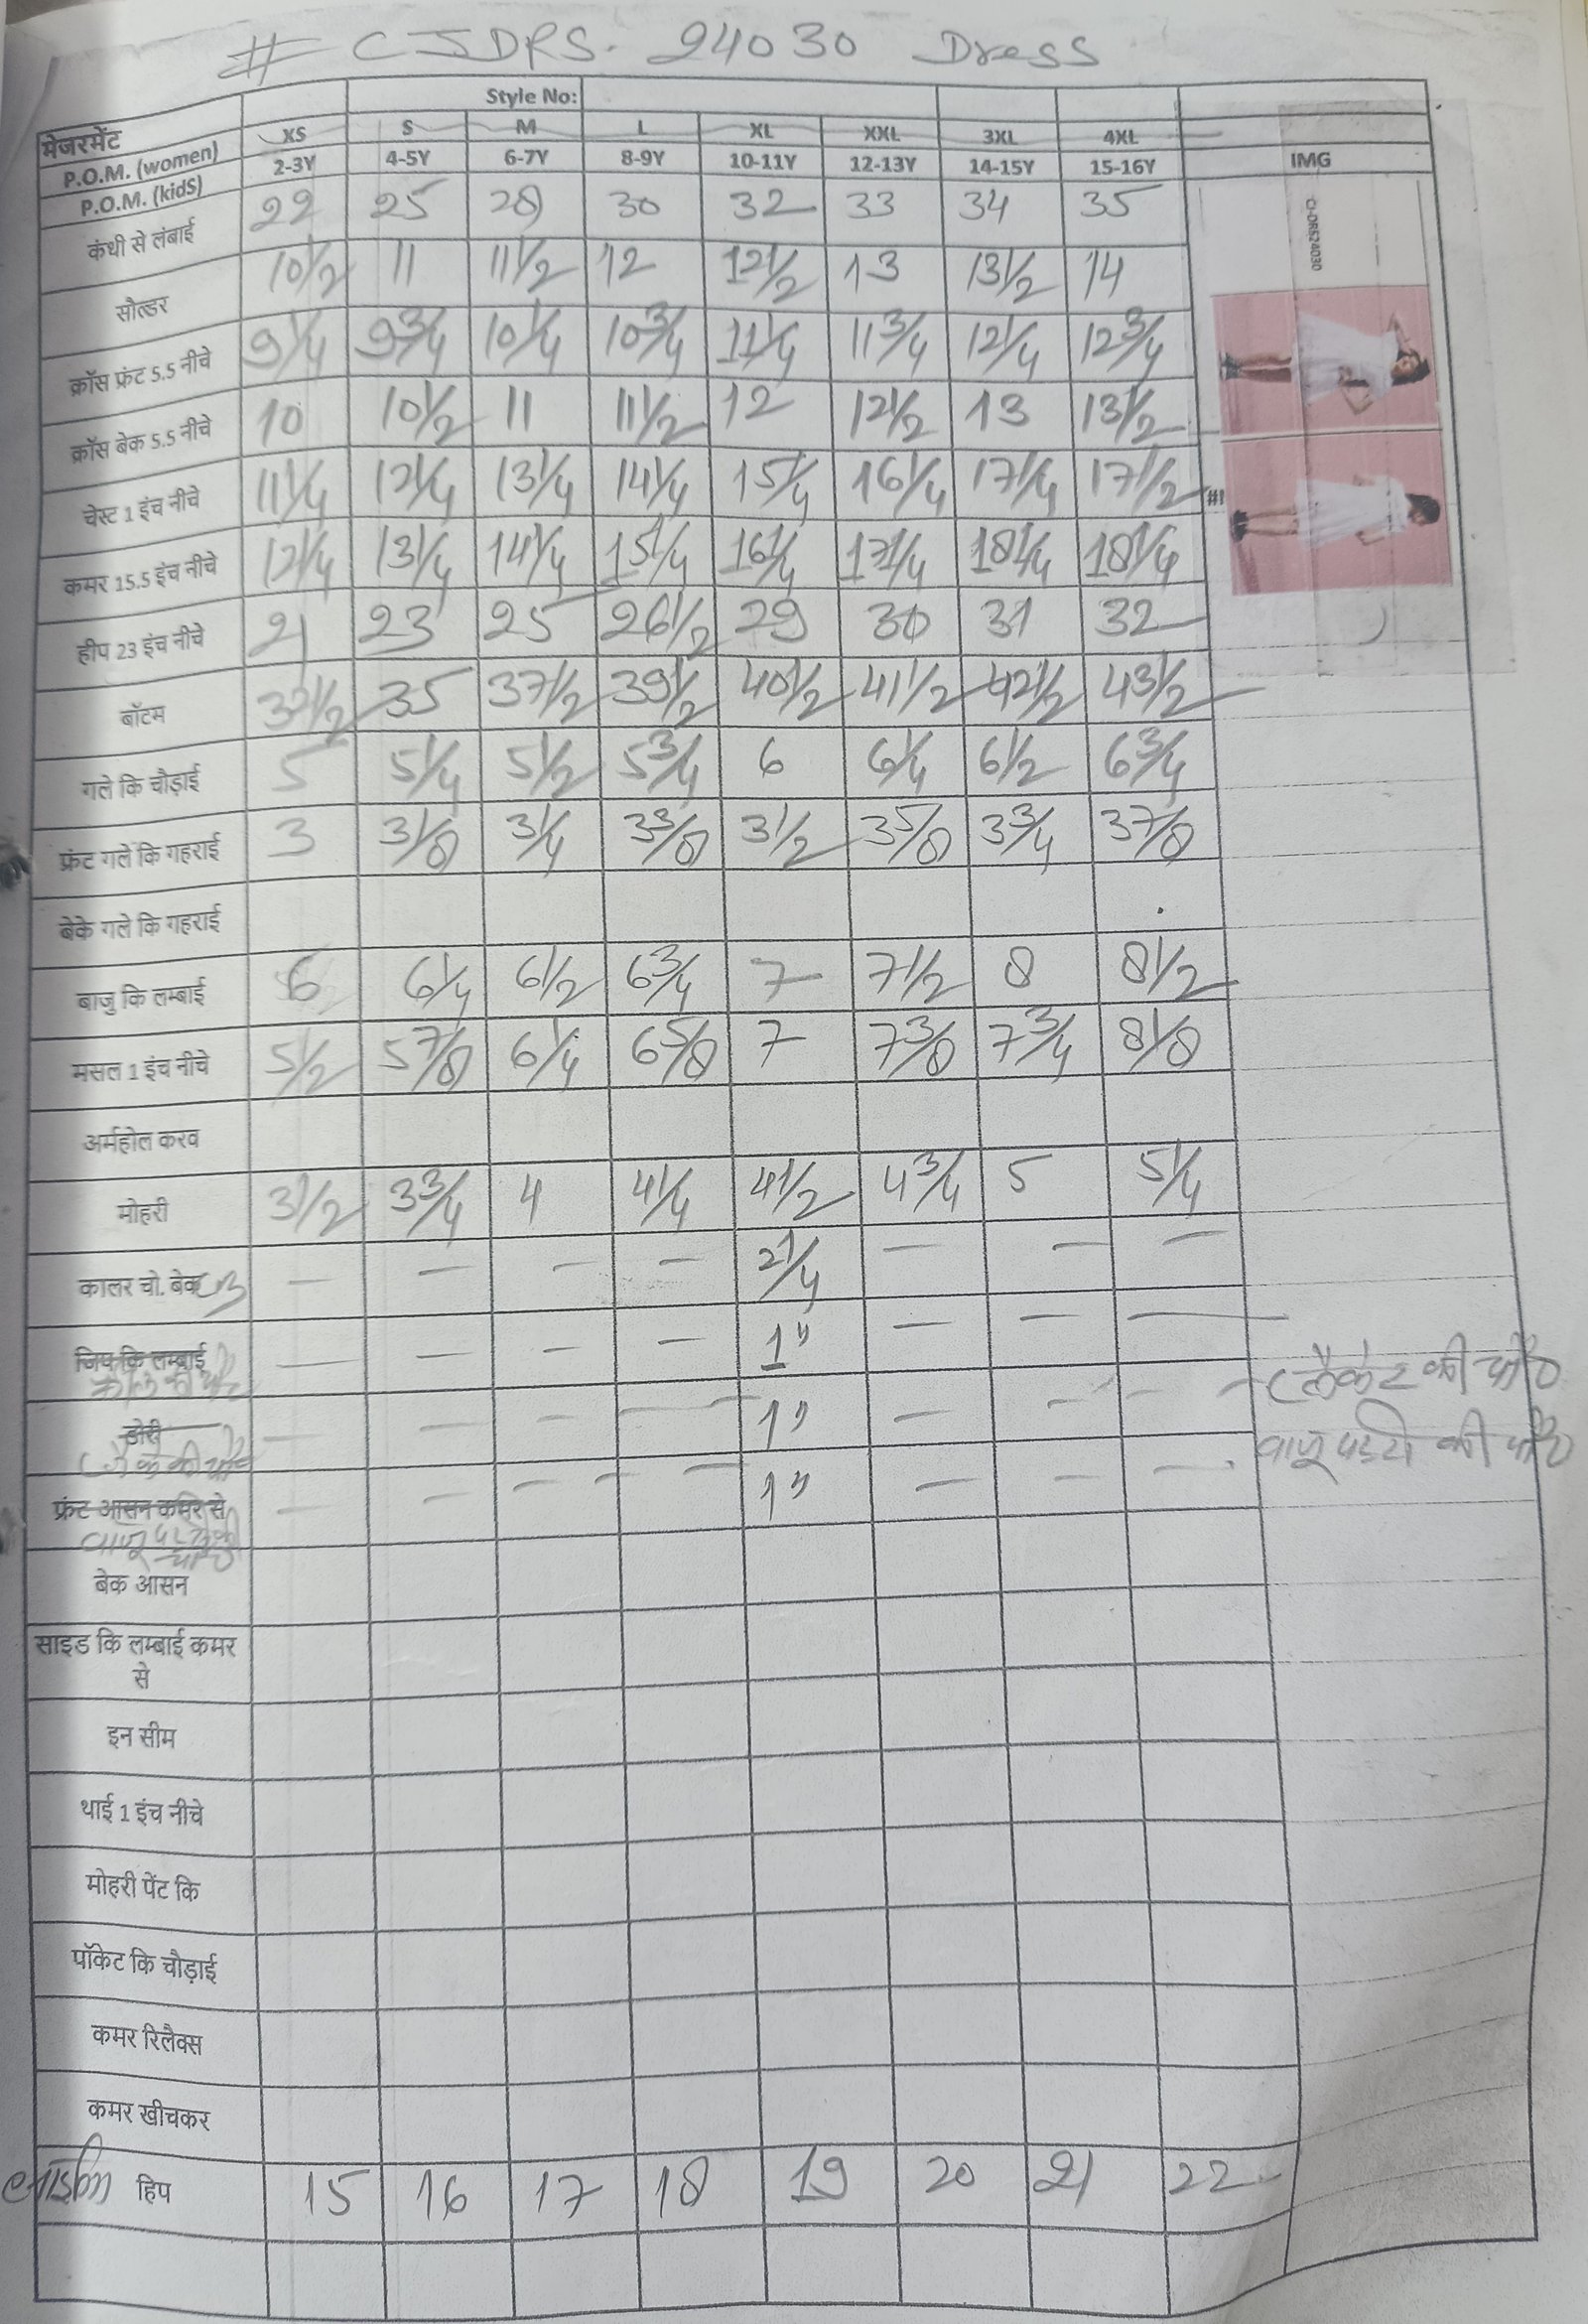 # CJDRS. 24030 Dress
Style No:
मेजरमेंट
P.O.M. (women) XS S M L XL XXL 3XL 4XL
P.O.M. (kidS) 2-3Y 4-5Y 6-7Y 8-9Y 10-11Y 12-13Y 14-15Y 15-16Y IMG
कंधी से लंबाई 22 25 28 30 32 33 34 35
CI-DRS24030
सौल्डर 10 1/2 11 11 1/2 12 12 1/2 13 13 1/2 14
क्रॉस फ्रंट 5.5 नीचे 9 1/4 9 3/4 10 1/4 10 3/4 11 1/4 11 3/4 12 1/4 12 3/4
क्रॉस बेक 5.5 नीचे 10 10 1/2 11 11 1/2 12 12 1/2 13 13 1/2
चेस्ट 1 इंच नीचे 11 1/4 12 1/4 13 1/4 14 1/4 15 1/4 16 1/4 17 1/4 17 1/2
कमर 15.5 इंच नीचे 12 1/4 13 1/4 14 1/4 15 1/4 16 1/4 17 1/4 18 1/4 18 1/4
हीप 23 इंच नीचे 21 23 25 26 1/2 29 30 31 32
बॉटम 32 1/2 35 37 1/2 39 1/2 40 1/2 41 1/2 42 1/2 43 1/2
गले कि चौड़ाई 5 5 1/4 5 1/2 5 3/4 6 6 1/4 6 1/2 6 3/4
फ्रंट गले कि गहराई 3 3 1/8 3 1/4 3 3/8 3 1/2 3 5/8 3 3/4 3 7/8
बेके गले कि गहराई
बाजु कि लम्बाई 6 6 1/4 6 1/2 6 3/4 7 7 1/2 8 8 1/2
मसल 1 इंच नीचे 5 1/2 5 7/8 6 1/4 6 5/8 7 7 3/8 7 3/4 8 1/8
अर्महोल करव
मोहरी 3 1/2 3 3/4 4 4 1/4 4 1/2 4 3/4 5 5 1/4
कालर चो. बेक — — — — 2 1/4 — — —
जिप कि लम्बाई — — — — 1" — — —
डोरी — — — — 1" — — — की चौ०
फ्रंट आसन कमर से — — — — 1" — — — बाजू पट्टी की चौ०
बेक आसन
साइड कि लम्बाई कमर
से
इन सीम
थाई 1 इंच नीचे
मोहरी पेंट कि
पॉकेट कि चौड़ाई
कमर रिलैक्स
कमर खीचकर
हिप 15 16 17 18 19 20 21 22